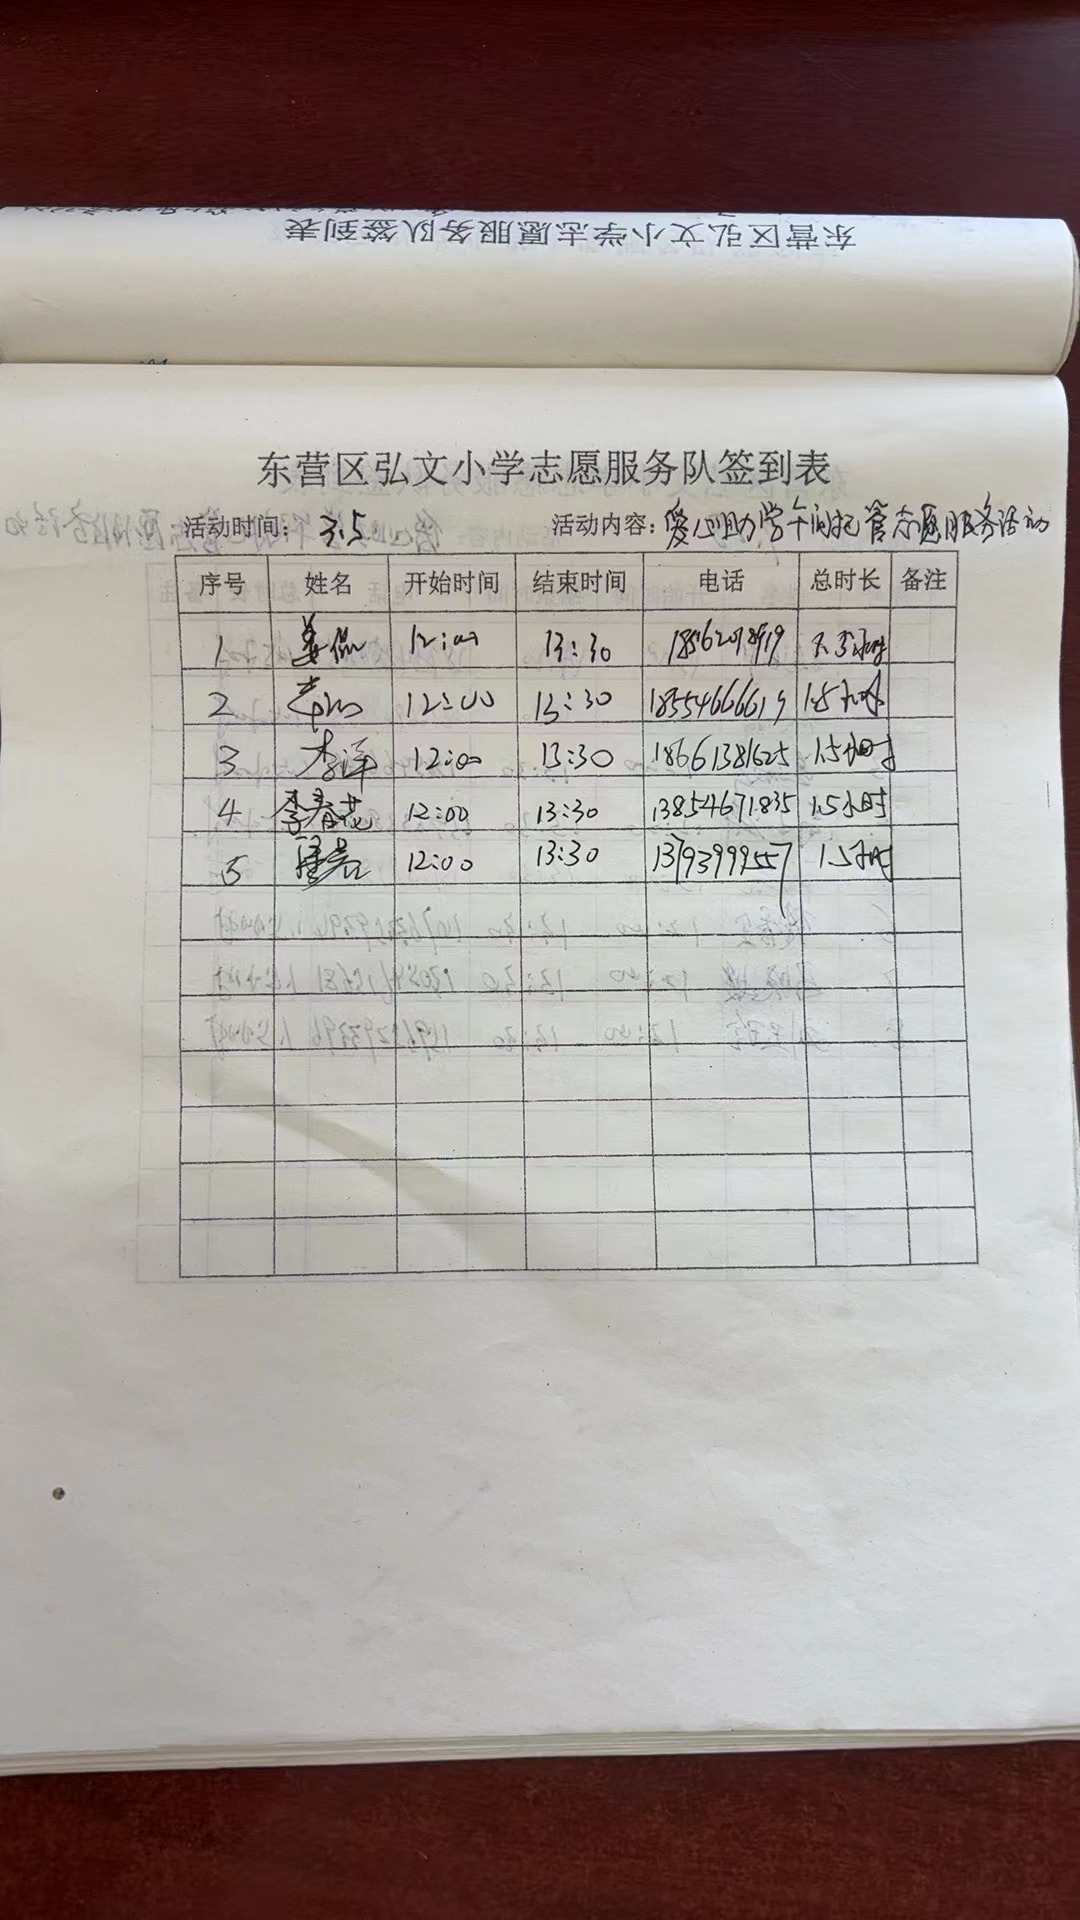 东营区弘文小学志愿服务队签到表
东营区弘文小学志愿服务队签到表
活动时间：3.5 活动内容：爱心助学午间托管志愿服务活动
序号 姓名 开始时间 结束时间 电话 总时长 备注
1 12:00 13:30
2 12:00 13:30 18554666619 1.5小时
3 李洋 12:00 13:30 18661381625 1.5小时
4 李春花 12:00 13:30 13854671835 1.5小时
5 12:00 13:30 13793999557 1.5小时